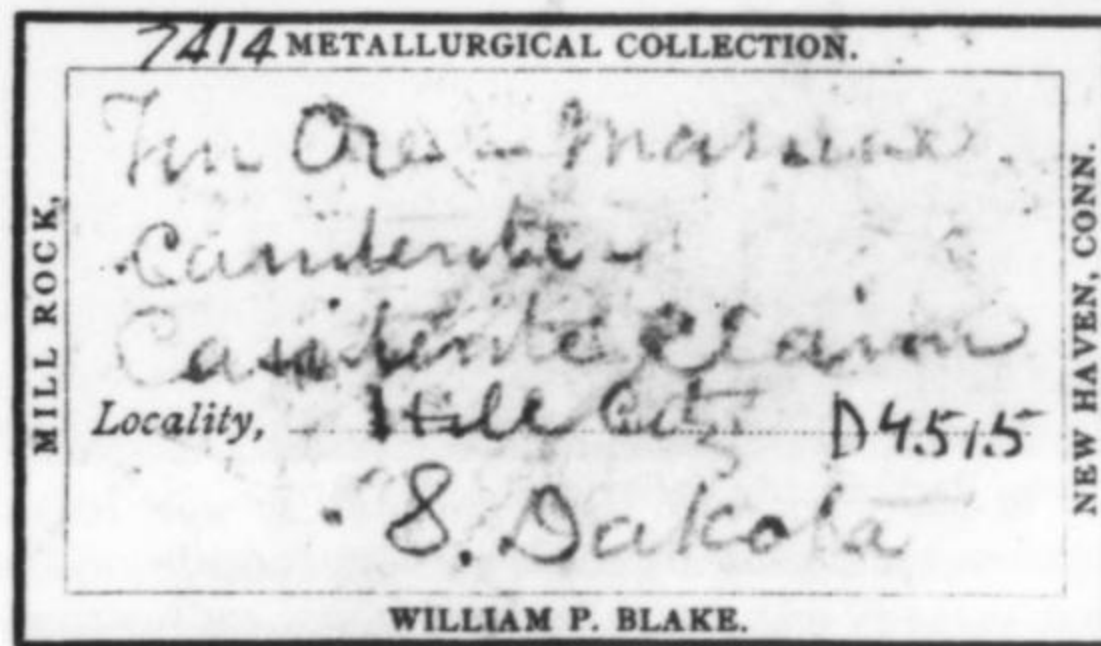 7414 METALLURGICAL COLLECTION.
Tin Ore - Massive
Cassiterite -
Cassiterite Claim
Locality, Hill City D4515
S. Dakota
MILL ROCK,
NEW HAVEN, CONN.
WILLIAM P. BLAKE.